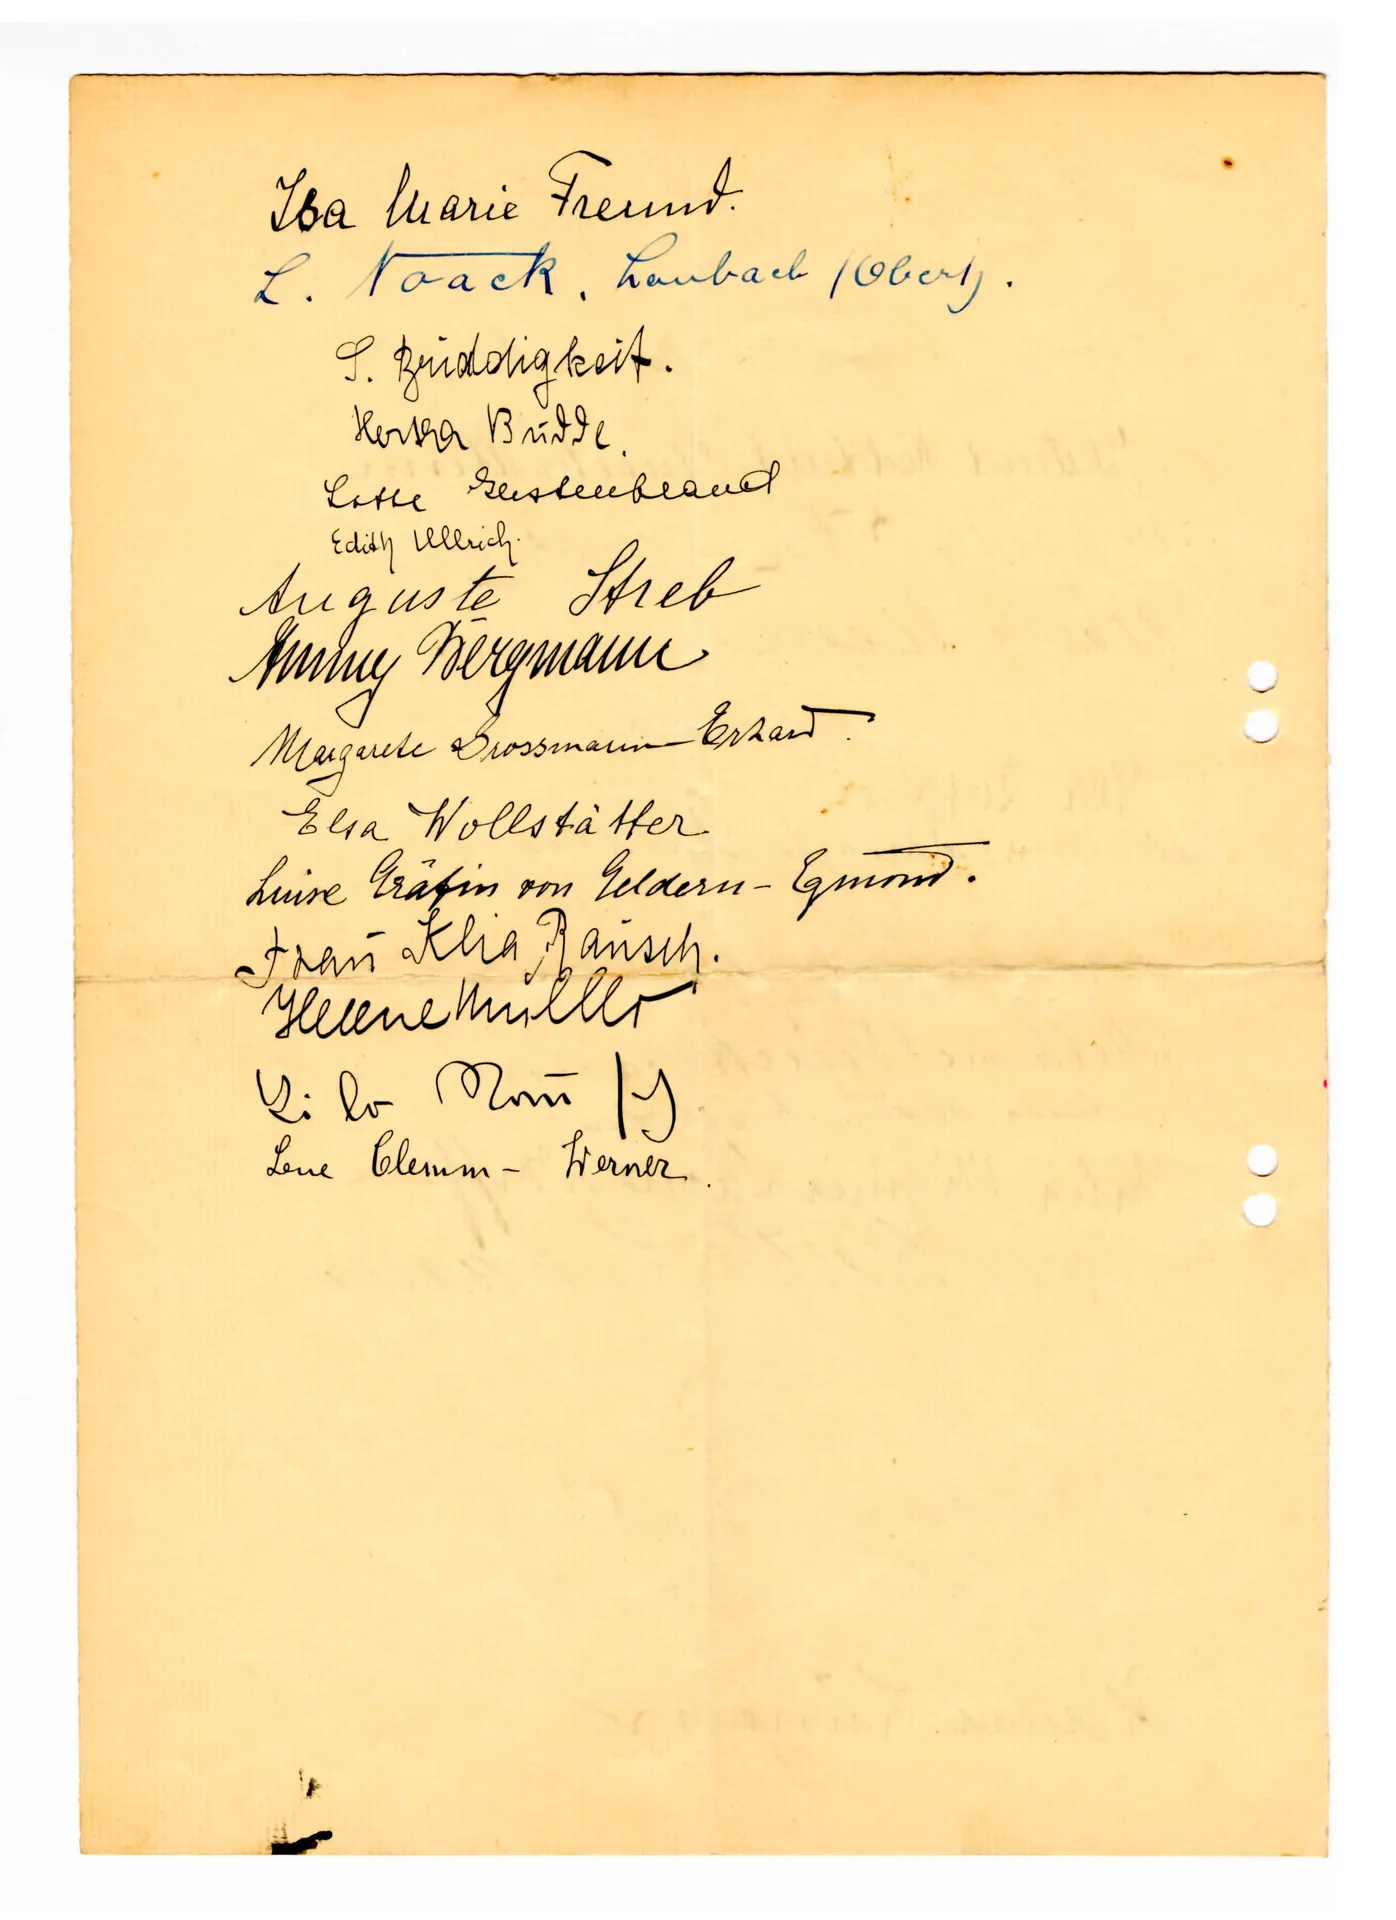 Isa Marie Freund.
L. Noack, Laubach (Oberh).
S. Bruddigkeit.
Hertha Budde.
Lotte Gerstenbrand
Edith Ullrich.
Auguste Streb
Anny Bergmann
Margarete Grossmann-Erhard.
Elsa Wollstätter
Luise Gräfin von Geldern-Egmond.
Frau Klia Rausch.
Helene Müller
Lilo
Lene Clemm-Werner.